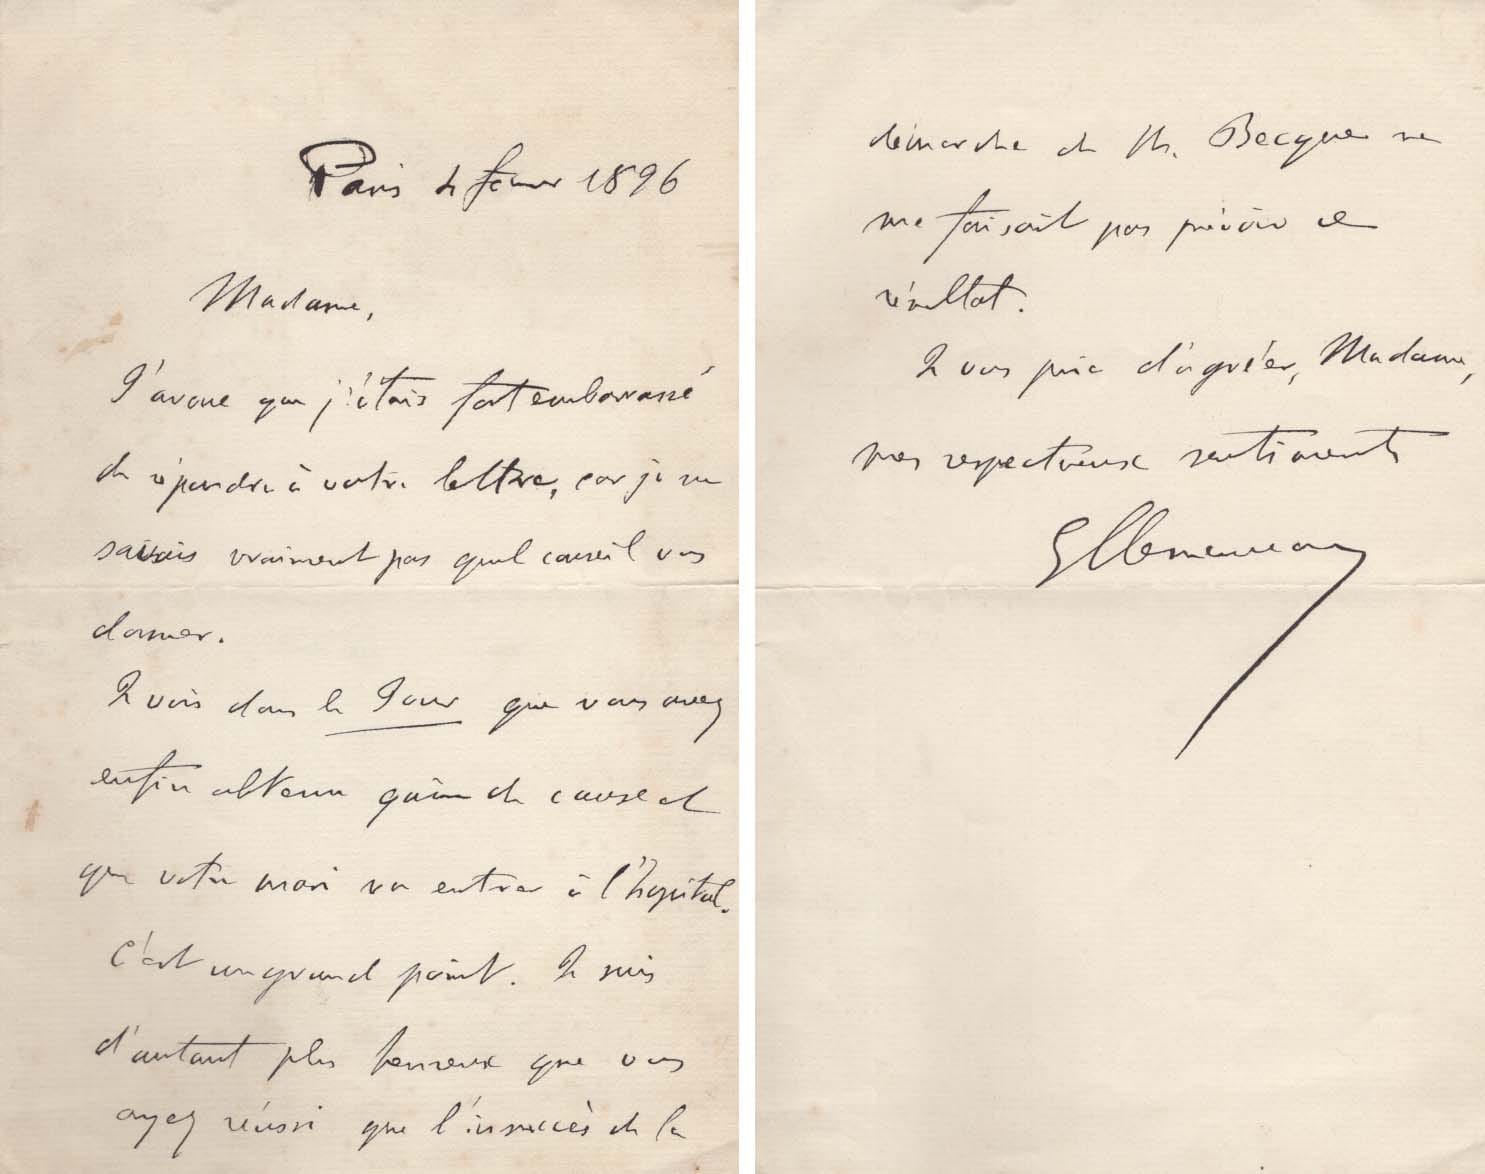 Paris 4 février 1896
Madame,
J'avoue que j'étais fort embarrassé
de répondre à votre lettre, car je ne
savais vraiment pas quel conseil vous
donner.
Je vois dans le Jour que vous avez
enfin obtenu gain de cause et
que votre mari va entrer à l'hôpital.
C'est un grand point. Je suis
d'autant plus heureux que vous
ayez réussi que l'insuccès de la
démarche de M. Becque ne
me faisait pas prévoir ce
résultat.
Je vous prie d'agréer, Madame,
mes respectueux sentiments
GClemenceau